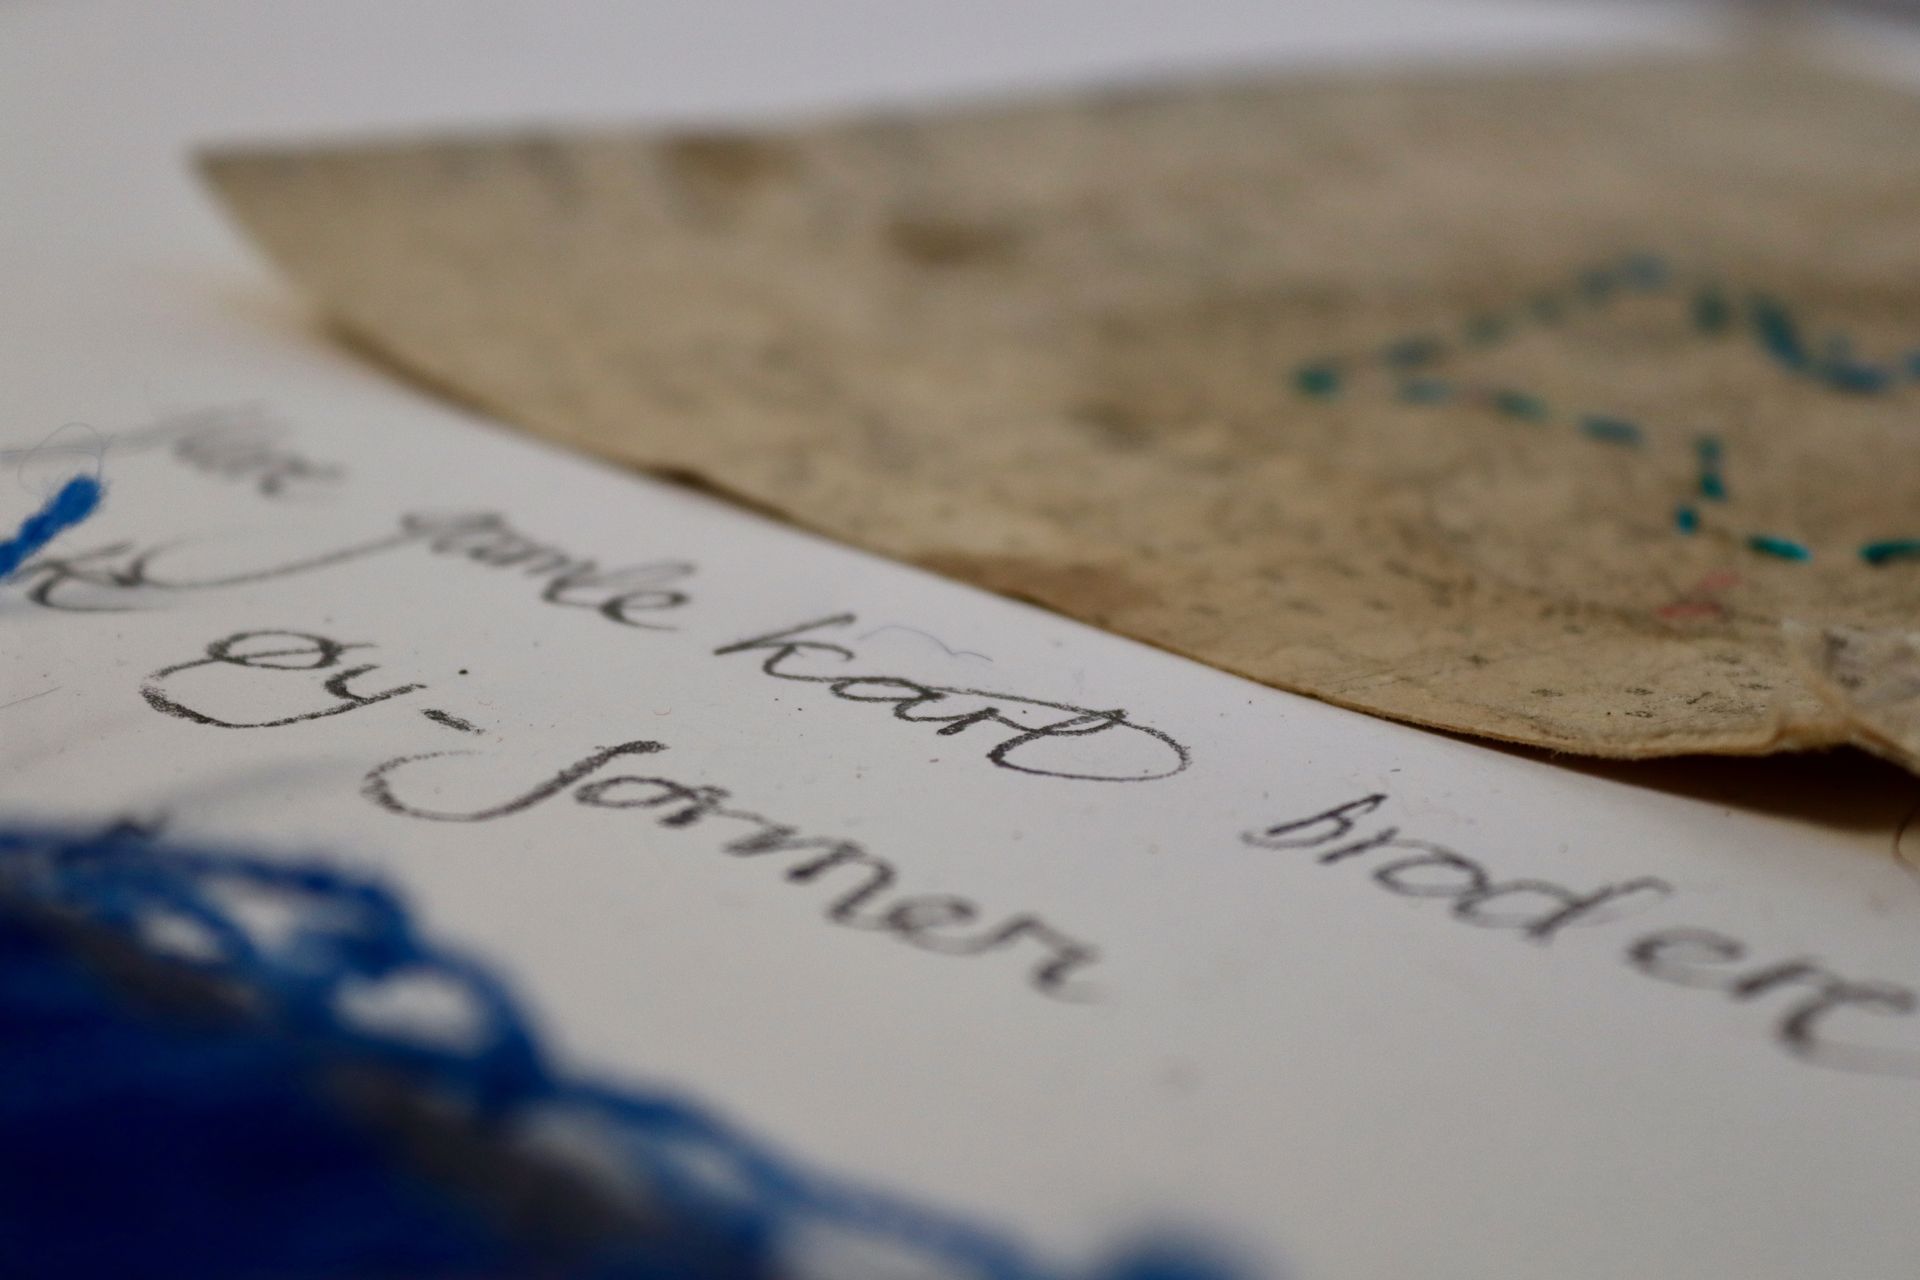 gamle kart brodere
Øy-former